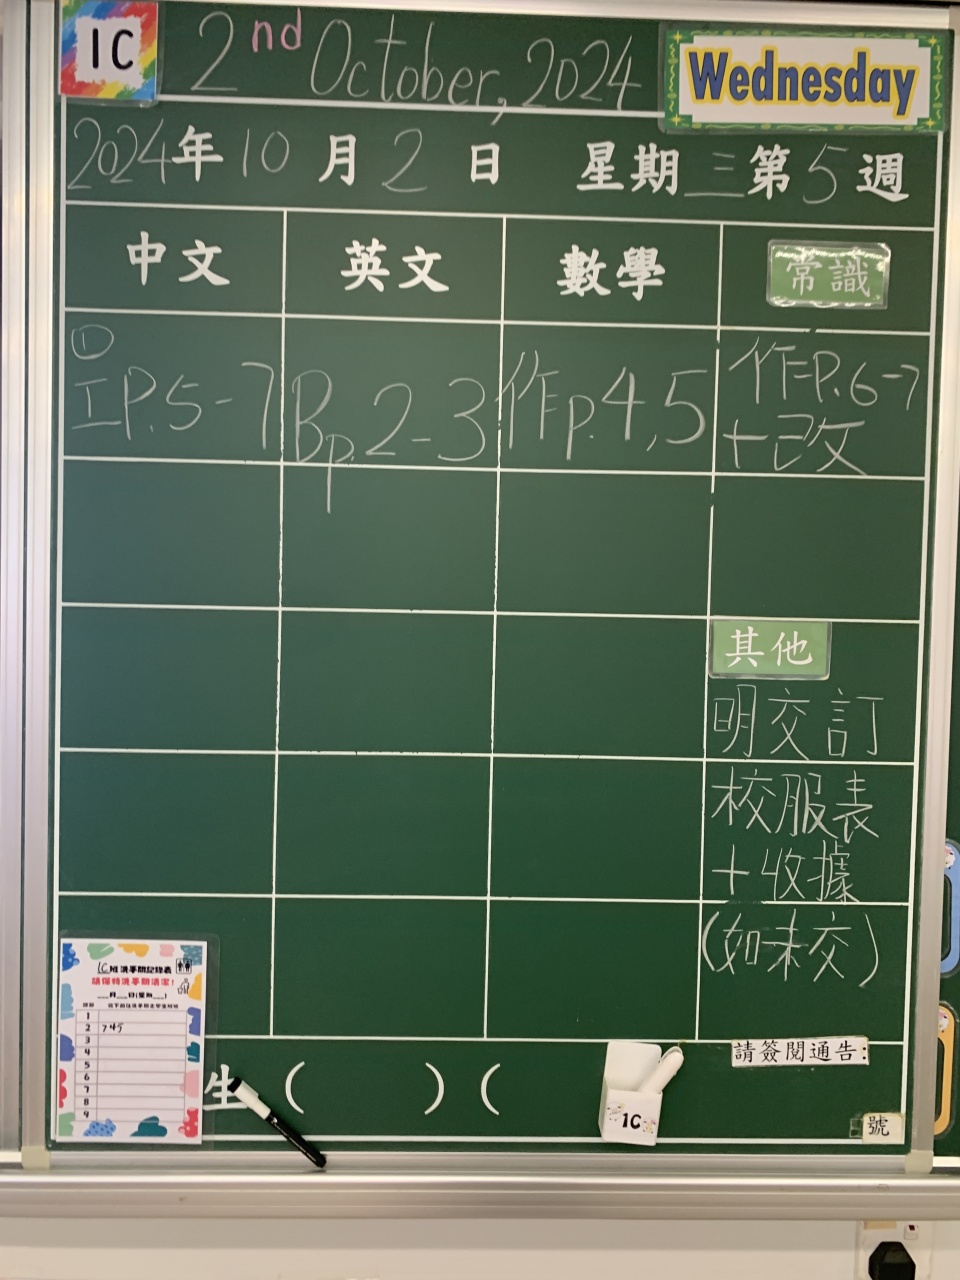 1C
2nd October, 2024
Wednesday
2024年10月2日 星期三第5週
中文 英文 數學 常識
①
工P.5-7
Bp.2-3
作p.4,5
作P.6-7
+已改
其他
明交訂
校服表
+收據
(如未交)
1C班洗手間記錄表
請保持洗手間清潔!
___月___日(星期___)
1
2 7 45
3
4
5
6
7
8
9
生 ( ) (
1C
請簽閱通告:
號